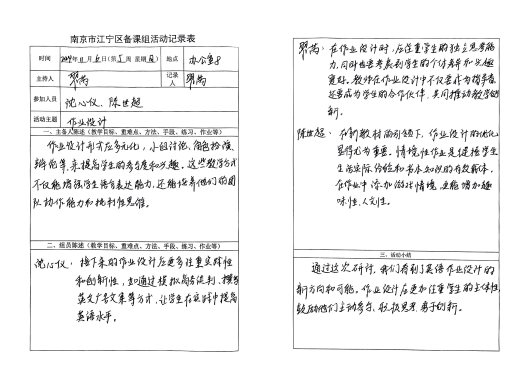 南京市江宁区备课组活动记录表
时间
地点
办公室
主持人
记录人
参加人员
沈心仪、陈世超
活动主题
作业设计
一、主备人陈述（教学目标、重难点、方法、手段、练习、作业等）
作业设计形式应多元化，小组讨论、角色扮演、
辩论等，来提高学生的参与度和兴趣。这些教学方式
不仅能增强学生语言表达能力，还能培养他们的团
队协作能力和批判性思维。
二、组员陈述（教学目标、重难点、方法、手段、练习、作业等）
沈心仪：接下来的作业设计应更多注重实践性
和创新性，如通过模拟商务谈判、撰写
英文广告文案等方式，让学生在实践中提高
英语水平。
在作业设计时，应注重学生的独立思考能
力，同时也要考虑到学生的个体差异和兴趣
爱好。教师在作业设计中不仅要作为指导者
还要成为学生的合作伙伴，共同推动教学创
新。
陈世超：在新教材的引领下，作业设计的优化
显得尤为重要。情境性作业是链接学生
生活实际、经验和书本知识的有效载体，
在作业中添加游戏情境，更能增加趣
味性、人文性。
三、活动小结
通过这次研讨，我们看到了英语作业设计的
新方向和可能。作业设计应更加注重学生的主体性，
鼓励他们主动参与、积极思考、勇于创新。